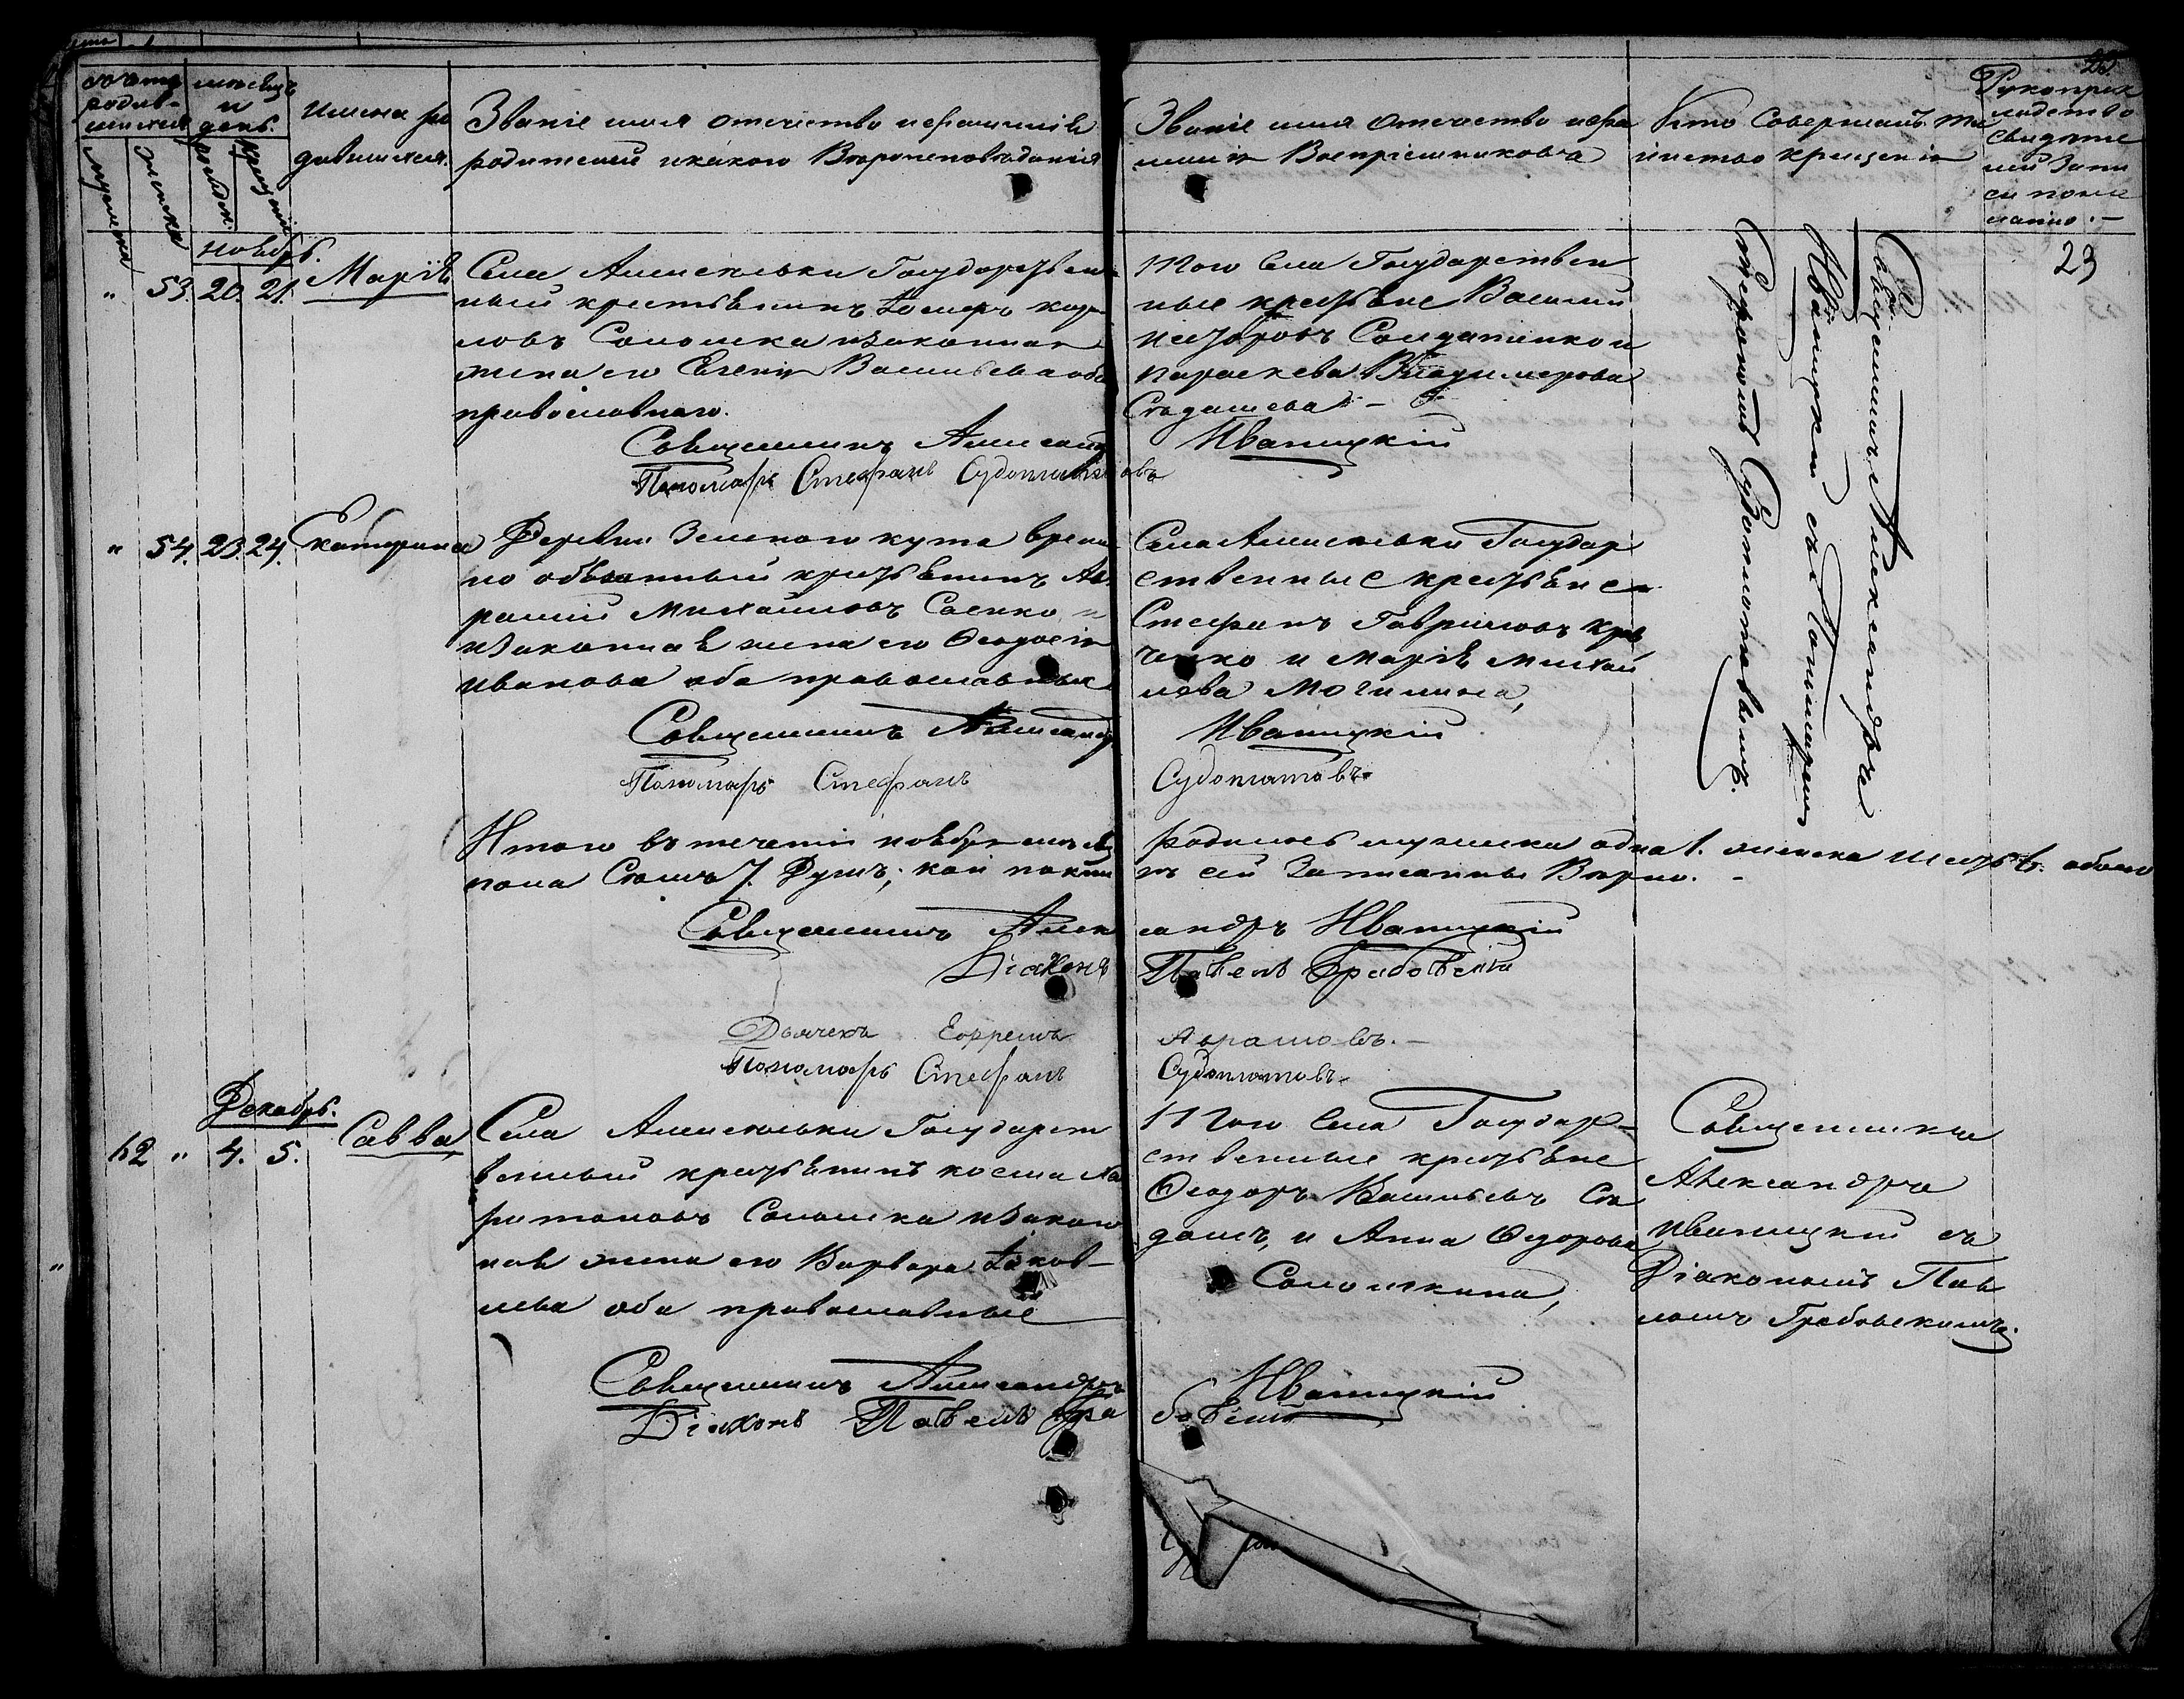 Счетъ родив-
шихся
мѣсяцъ
и
день.
Имена ро
дившихся.
Званіе имя отечество и фамилія
родителей и какого Вѣроисповѣданія
Званіе имя Отечество и фа
милія Воспріемниковъ
Кто Совершалъ та
инство крещенія
Рукоприк
ладство
Свидѣте
лей Запи
си поже
ланію.
мужеска
женска
рожден.
крещенія
23
Ноябрь.
" 53. 20. 21. Марія
Села Алексѣевки Государствен
ный крестьянинъ
ловъ Соломка и законная
жена его Евгенія Васильева оба
православнаго.
Священникъ Александръ Иваницкій
Пономарь Стефанъ Судоплатовъ
Того Села Государствен
ные крестьяне Василій
Солдатенко и
параскева Владимерова
Священникъ Александръ
Иваницкій съ Пономаремъ
Стефаномъ Судоплатовымъ.
" 54. 23. 24. Екатерина
Деревни Зеленого кута времен
но обязанный крестьянинъ Ав
рамій Михайловъ Саенко
и законная жена его Ѳеодосія
Иванова оба православные
Села Алексѣевки Государ
ственные крестьяне
Стефанъ Гавриловъ Крав
ченко и Марія Михай
лова Могилина,
Священникъ Александръ Иваницкій
Пономарь Стефанъ Судоплатовъ
Итого въ теченіи ноября мѣсяца родилось мужеска одна 1. женска шесть 6. обоего
пола Семь 7. Душъ; кои по Вѣрно.
Священникъ Александръ Иваницкій
Діаконъ Павелъ Грабовскій
Дьячекъ Ефремъ Абрамовъ.
Пономарь Стефанъ Судоплатовъ
Декабрь.
12 " 4. 5. Савва
Села Алексѣевки Государст
венный крестьянинъ косма Ха
ритоновъ Соломка и закон
ная жена его Варвара Іаков-
лева оба православные
Того Села Государ-
ственные крестьяне
Ѳеодоръ Васильевъ
и Анна Ѳедорова
Соломкина,
Священникъ
Александръ
Иваницкій съ
Діакономъ Пав
ломъ Грабовскимъ.
Священникъ Александръ Иваницкій
Діаконъ Павелъ Грабовскій